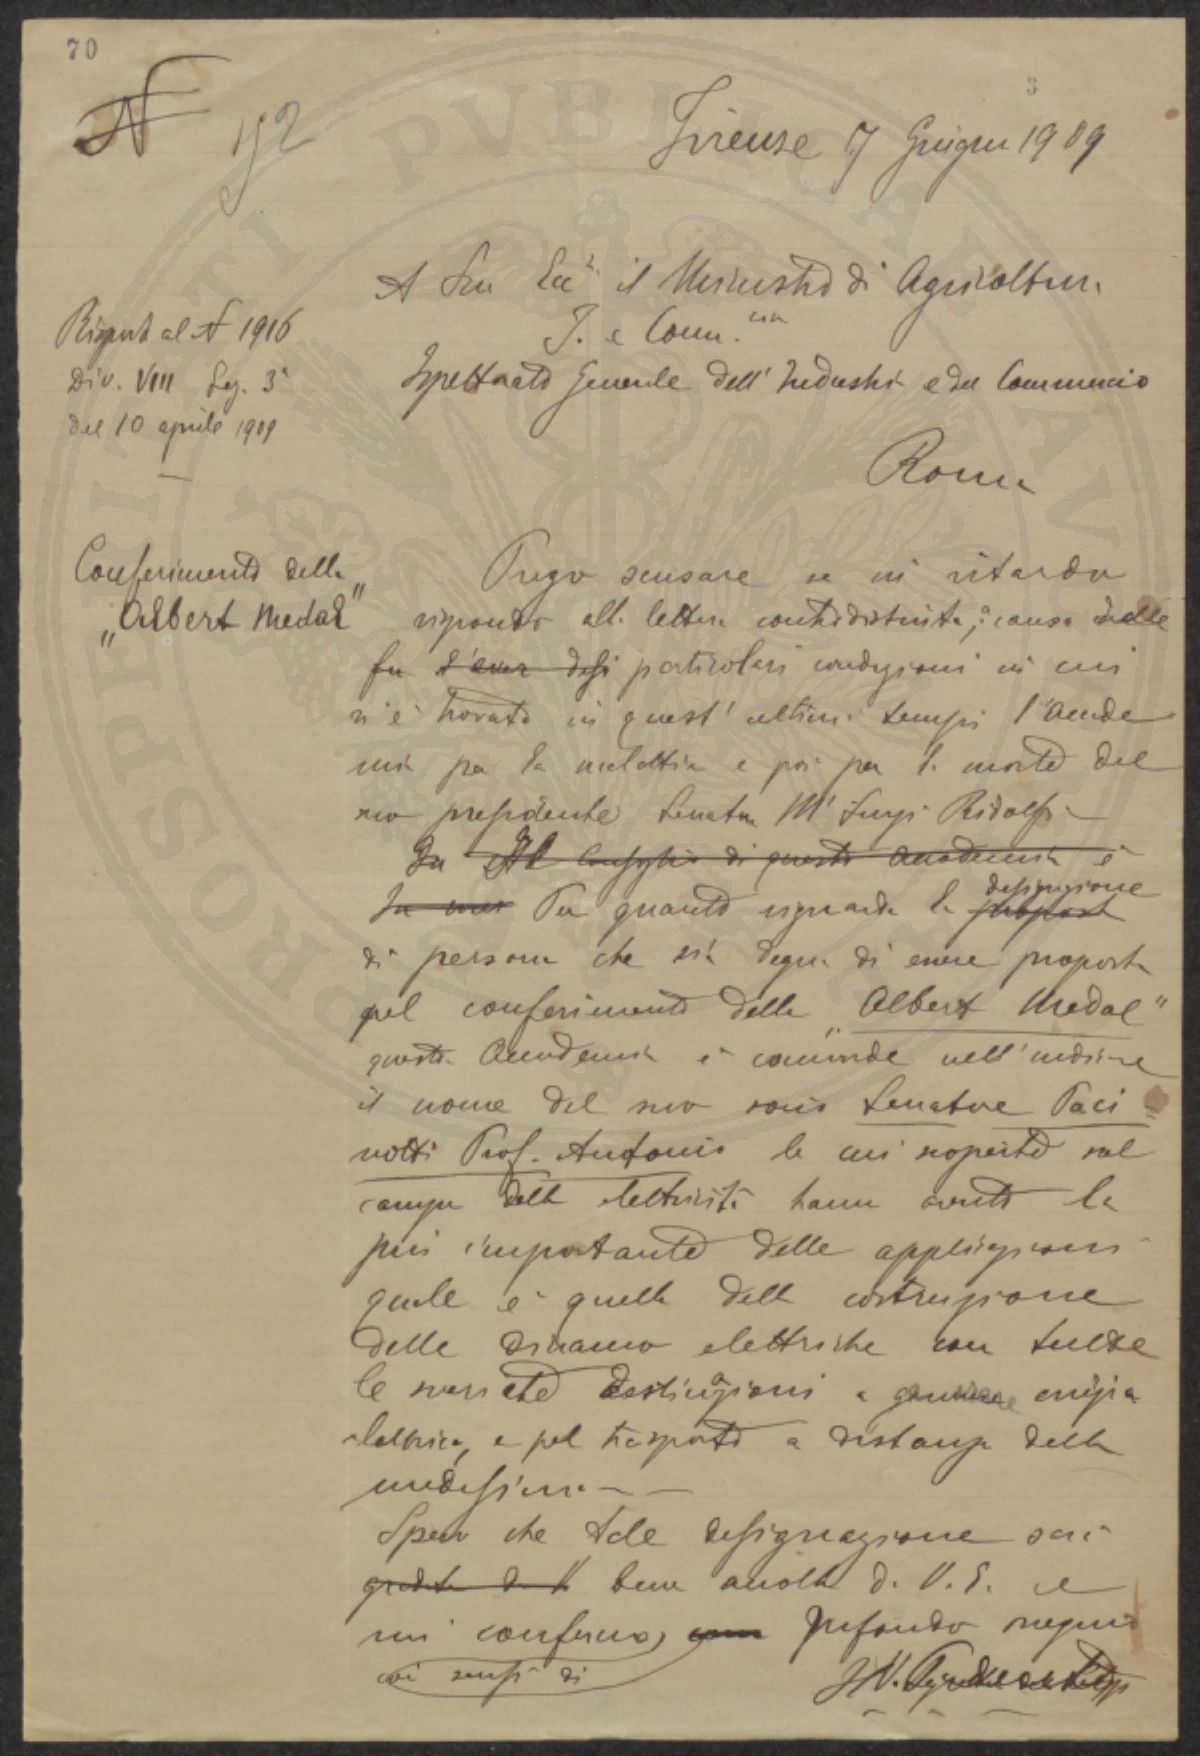 70
N 152
3
Firenze 7 Giugno 1909
A Sua Ecc. il Ministro di Agricoltura
I. e Comm.cio
Ispettorato Generale dell'Industria e del Commercio
Roma
Risposta al N 1916
Div. VIII Sez. 3ª
del 10 aprile 1909
Conferimento della
"Albert Medal"
Prego scusare se in ritardo
rispondo alla lettera controdistinta, a causa delle
fu l'aver desi particolari condizioni in cui
si è trovata in quest'ultimi tempi l'Accade
mia per la malattia e poi per la morte del
suo presidente Senatore Mse Luigi Ridolfi
Il Consiglio di questa Accademia è
Per quanto riguarda la proposta designazione
di persona che sia degna di essere proposta
pel conferimento della "Albert Medal"
questa Accademia è concorde nell'indicare
il nome del suo socio Senatore Paci
notti Prof. Antonio le cui scoperte nel
campo della elettricità hanno avuto la
più importante delle applicazioni
quale è quella della costruzione
delle dinamo elettriche con tutte
le svariate destinazioni a generare energia
elettrica, e pel trasporto a distanza della
medesima
Spero che tale designazione sarà
gradita da V bene accolta da V. E. e
mi confermo, con profondo ossequio
coi sensi di
Il V.
PVBLICAE
PROSPERITATI